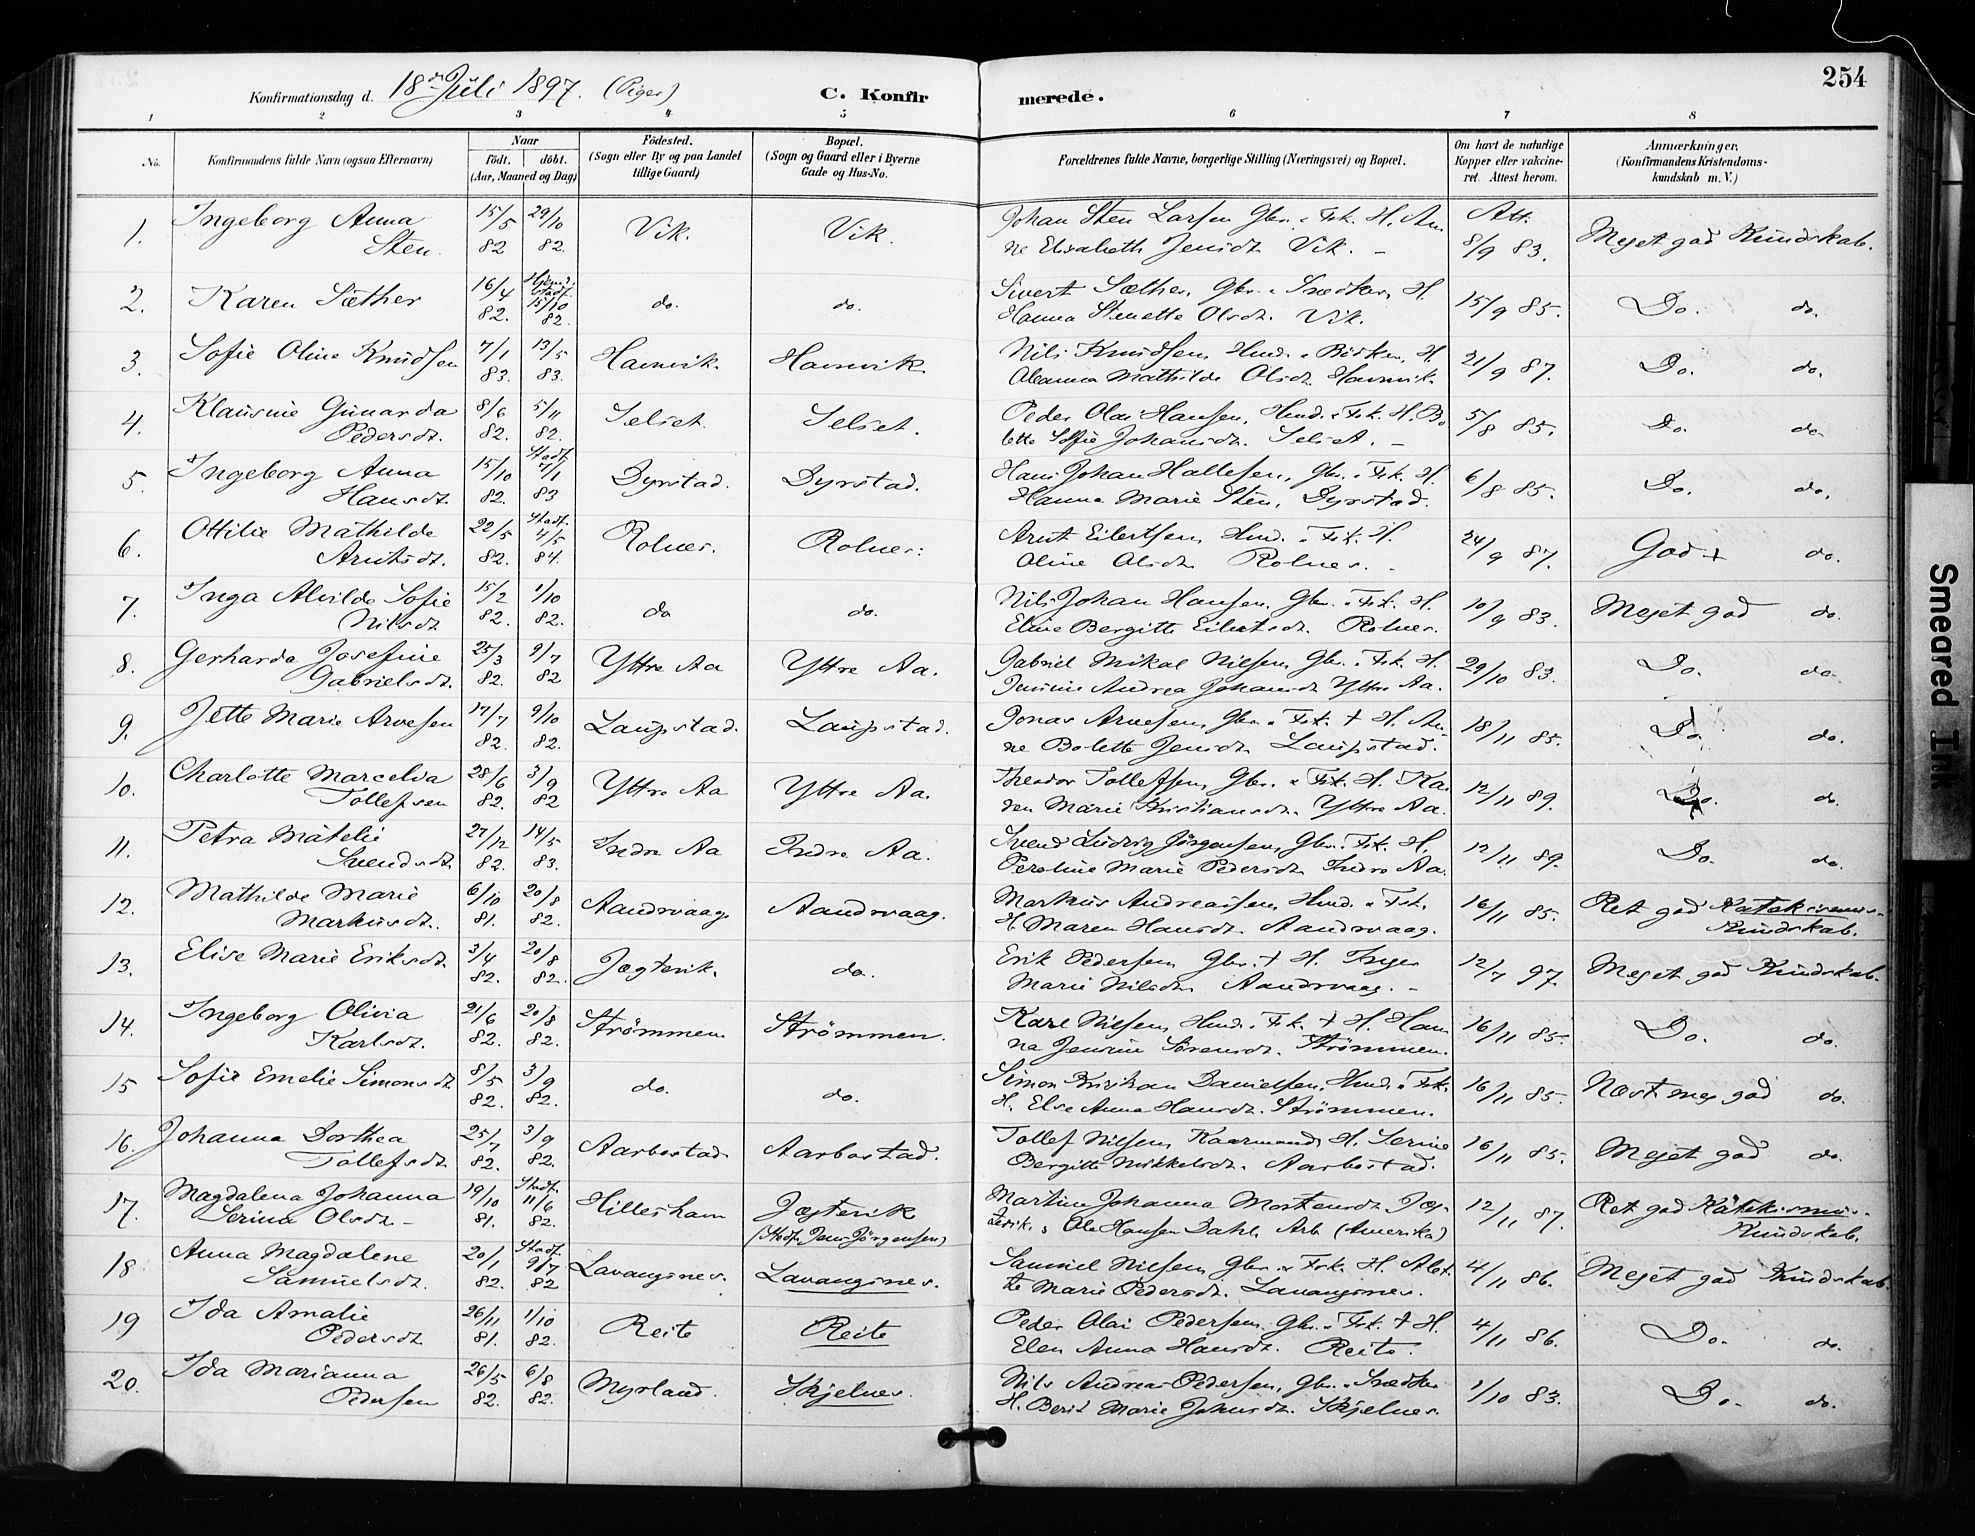 254
Konfirmationsdag d. 18de Juli 1897. (Piger)
C. Konfirmerede.
1 2 3 4 5 6 7 8
No.
Konfirmandens fulde Navn (ogsaa Efternavn)
Naar
født. døbt.
(Aar, Maaned og Dag)
Fødested.
(Sogn eller By og paa Landet
tillige Gaard)
Bopæl.
(Sogn og Gaard eller i Byerne
Gade og Hus-No.
Forældrenes fulde Navne, borgerlige Stilling (Næringsvei) og Bopæl.
Om havt de naturlige
Kopper eller vakcine-
ret. Attest herom.
Anmærkninger.
(Konfirmandens Kristendoms-
kundskab m. V.)
1. Ingeborg Anna 15/5 29/10 Vik. Vik. Johan Sten Larsen Gbr. & Fsk. H. An Att. Meget god Kundskab.
Sten. 82 82. ne Elisabeth Jensdt. Vik. – 8/9 83.
2. Karen Sæther 16/4 82. Hjemd. Stadf. 15/10 82. do. do. Sivert Sæther, Gbr. & Snedker, H. 15/9 85. Do. do.
Hanna Stenette Olsdt. Vik.
3. Sofie Oline Knudsen 7/1 83. 13/5 83. Havnvik. Havnvik. Nils Knudsen, Hmd. & Bødker, H. 21/9 87. Do. do.
Oleanna Mathilde Olsdt. Havnvik.
4. Klausine Gunarda 8/6 5/11 Selset. Selset. Peder Olai Hansen, Hmd. & Fsk. H. Bo 5/8 85. Do. do.
Pedersdt. 82. 82. lette Sofie Johansdt. Selset. –
5. Ingeborg Anna 15/10 Stadf. 7/1 Dyrstad. Dyrstad. Hans Johan Hallesen, Gbr. & Fsk. H. 6/8 85. Do. do.
Hansdt. 82. 83 Hanna Marie Sten, Dyrstad.
6. Ottilie Mathilde 22/5 Stadf. 4/5 Rolnes. Rolnes. Arnt Eilertsen, Hmd. & Fsk. H. 24/9 87. God + do.
Arntsdt. 82. 84. Oline Olsdt. Rolnes. –
7. Inga Alvilde Sofie 15/2 1/10 do do. Nils Johan Hansen, Gbr. & Fsk. H. 10/9 83. Meget god do.
Nilsdt. 82. 82. Eline Bergitte Eilertsdt. Rolnes.
8. Gerharda Josefine 25/3 9/7 Yttre Aa Yttre Aa. Gabriel Mikal Nilsen, Gbr. & Fsk. H. 29/10 83. Do. do.
Gabrielsdt. 82. 82 Jensine Andrea Johansdt. Yttre Aa.
9. Jette Marie Arvesen 17/7 9/10 Laupstad. Laupstad. Jonas Arvesen, Gbr. & Fsk. † H. An 18/11 85. Do. do.
82. 82. ne Bolette Jensdt. Laupstad.
10. Charlotte Marcelia 28/6 3/9 Yttre Aa Yttre Aa. Theodor Tollefsen, Gbr. & Fsk. H. Ka 12/11 89. Do. do.
Tollefsen 82. 82 ren Marie Kristiansdt. Yttre Aa.
11. Petra Matelie 27/12 14/5 Indre Aa Indre Aa. Svend Ludvig Jörgensen, Gbr. & Fsk. H. 12/11 89. Do. do.
Svendsdt. 82. 83. Peroline Marie Pedersdt. Indre Aa.
12. Mathilde Marie 6/10 20/8 Aandrvaag. Aandrvaag. Markus Andreassen, Hmd. & Fsk. 16/11 85. Ret god Katekismus-
Markusdt. 81. 82. H. Maren Hansdt. Aandrvaag. Kundskab.
13. Elise Marie Eriksdt. 3/4 20/8 Jægtevik. do. Erik Pedersen Gbr. † H. Inger 12/7 97. Meget god Kundskab.
82. 82. Marie Nilsdt. Aandrvaag. –
14. Ingeborg Olivia 21/6 20/8 Strömmen Strömmen. Karl Nilsen, Hmd. & Fsk. † H. Han 16/11 85. Do. do.
Karlsdt. 82. 82. na Jensine Sörensdt. Strömmen.
15 Sofie Emelie Simonsdt. 8/5 3/9 do. do. Simon Kristian Danielsen, Hmd. & Fsk. 16/11 85. Næst meg god do.
82. 82. H. Else Anna Hansdt. Strömmen.
16. Johanna Dorthea 25/7 3/9 Aarbostad Aarbostad. Tollef Nilsen, Kaarmand, H. Serine 16/11 85. Meget god do.
Tollefsdt. 82. 82. Bergitte Mikkelsdt. Aarbostad.
17. Magdalena Johanna 19/10 Stadf. 11/6 Hillesham Jægtevik Martine Johanna Mortensdt. Jæg- 12/11 87. Ret god Katekismus-
Serina Olsdt – 81. 82. (Stedf. Jens Jörgensen) tevik. & Ole Hansen Dahl, Arb. (Amerika) Kundskab.
18 Anna Magdalene 20/1 Stadf. 9/7 Lavangsnes. Lavangsnes. Samuel Nilsen, Gbr. & Fsk. H. Alet 4/11 86. Meget god Kundskab
Samuelsdt. 82. 82 te Marie Pedersdt. Lavangsnes.
19 Ida Amalie 26/11 1/10 Reite Reite Peder Olai Pedersen, Gbr. & Fsk. † H. 4/11 86. Do. do.
Pedersdt. 81. 82. Elen Anna Hansdt. Reite.
20. Ida Marianna 26/5 6/8 Myrland. Skjelnes. Nils Andreas Pedersen, Gbr. & Snedker 1/10 83. Do. do.
Pedersen 82. 82. H. Berit Marie Johnsdt. Skjelnes.
Smeared Ink